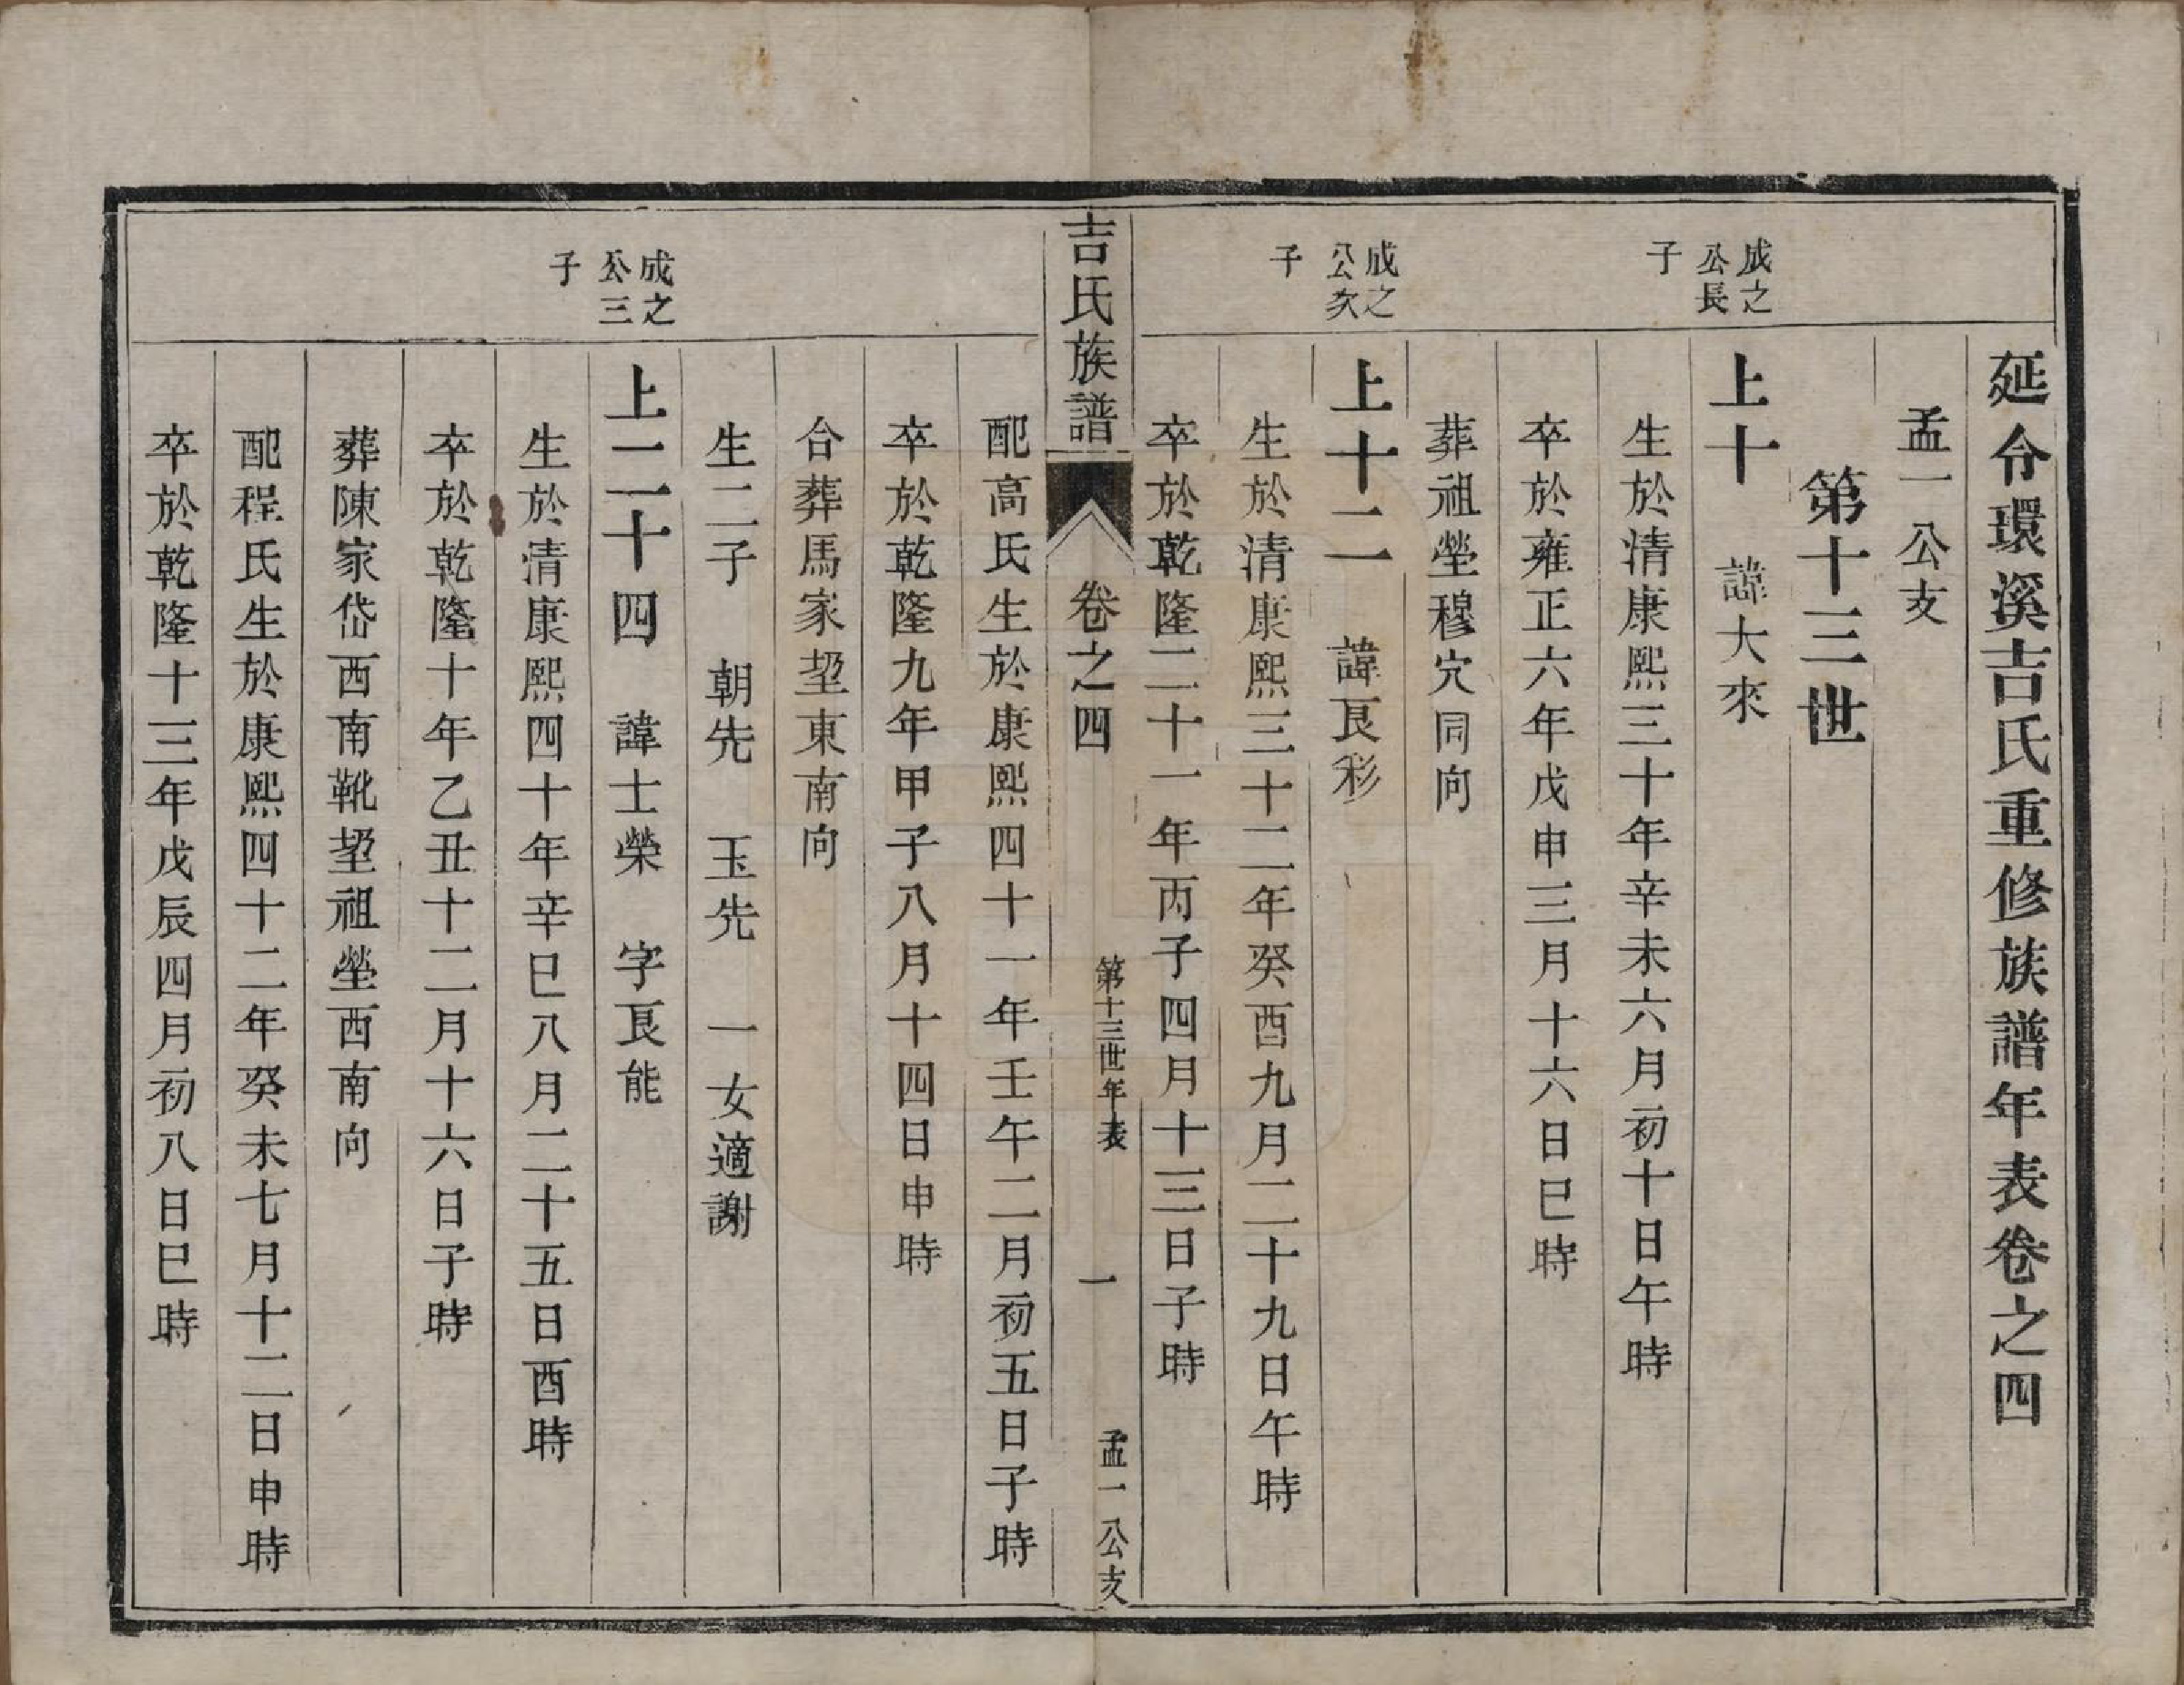 延令環溪吉氏重修族譜年表卷之四
孟一公支
第十三世
成之公長子
上十　諱大來
生於清康熙三十年辛未六月初十日午時
卒於雍正六年戊申三月十六日巳時
葬祖塋穆穴同向
成之公次子
上十二　諱良彩
生於清康熙三十二年癸酉九月二十九日午時
卒於乾隆二十一年丙子四月十三日子時
吉氏族譜　卷之四　第十三世年表　一　孟一公支
配高氏生於康熙四十一年壬午二月初五日子時
卒於乾隆九年甲子八月十四日申時
合葬馬家垔東南向
生二子　朝先　玉先　一女適謝
成之公三子
上二十四　諱士榮　字良能
生於清康熙四十年辛巳八月二十五日酉時
卒於乾隆十年乙丑十二月十六日子時
葬陳家岱西南靴垔祖塋西南向
配程氏生於康熙四十二年癸未七月十二日申時
卒於乾隆十三年戊辰四月初八日巳時